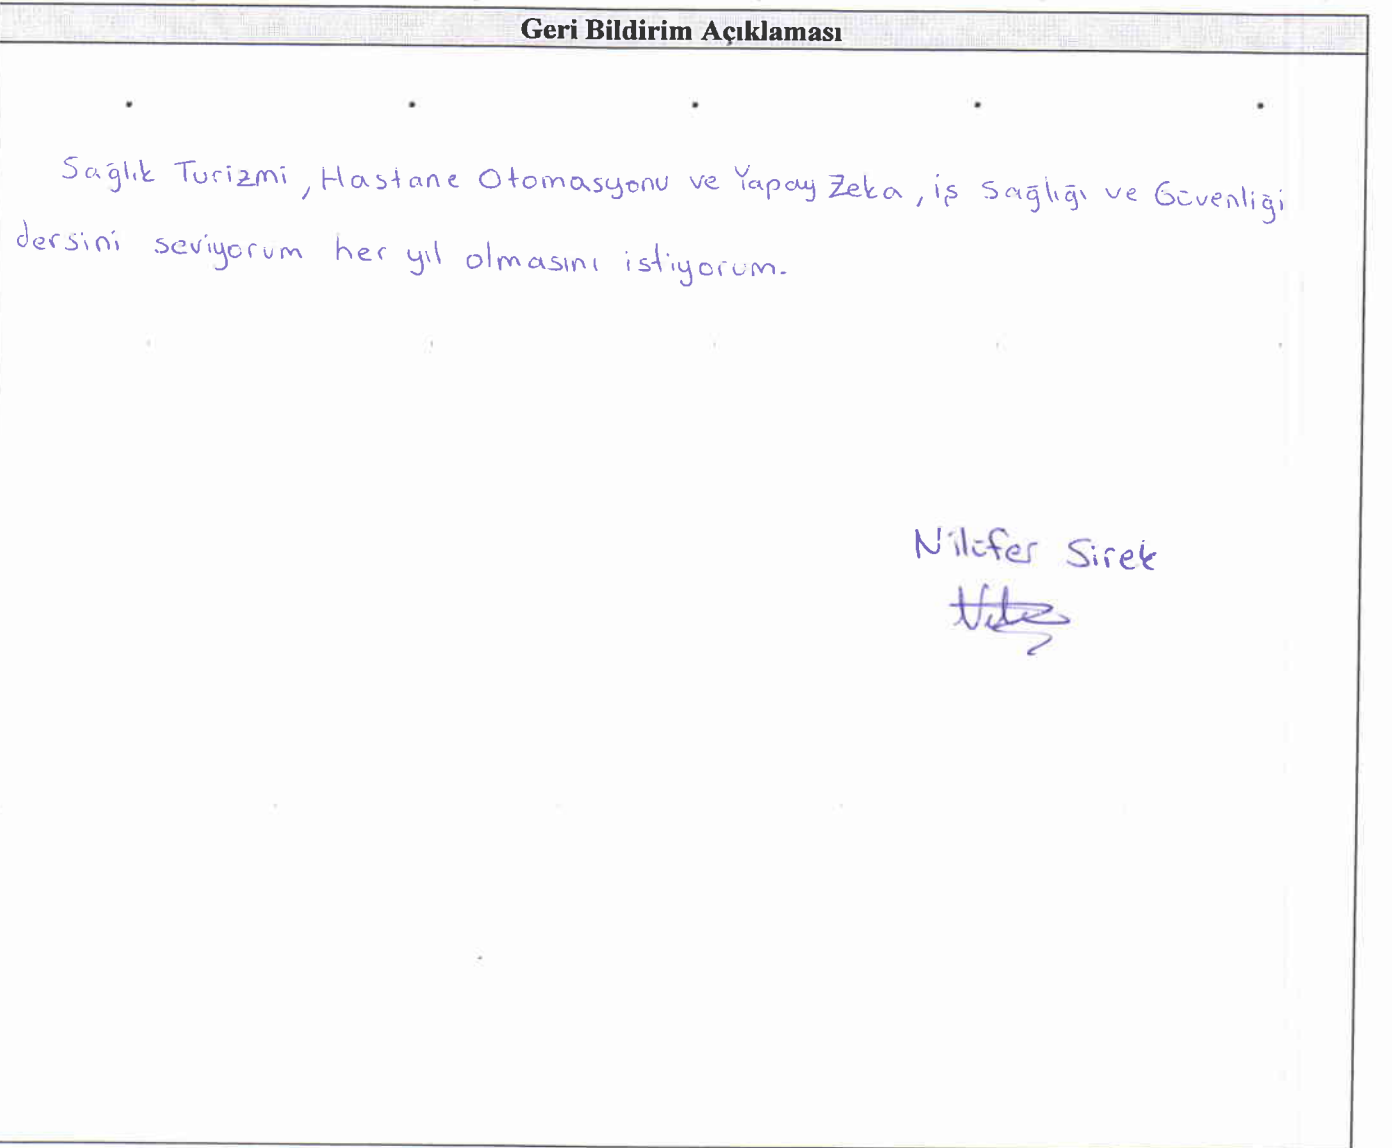 Geri Bildirim Açıklaması
Sağlık Turizmi, Hastane Otomasyonu ve Yapay Zeka, iş Sağlığı ve Güvenliği
dersini seviyorum her yıl olmasını istiyorum.
Nilüfer Sirek